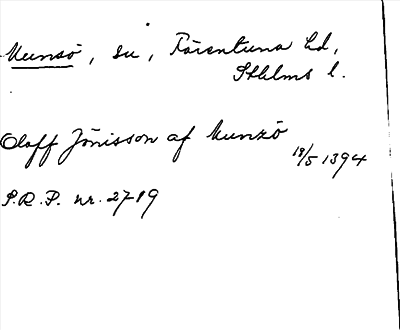 Munsö, su, Färentuna hd,
Sthlms l.
Oloff Jönisson af Munzö
18/5 1394
S.R.P. nr. 2719